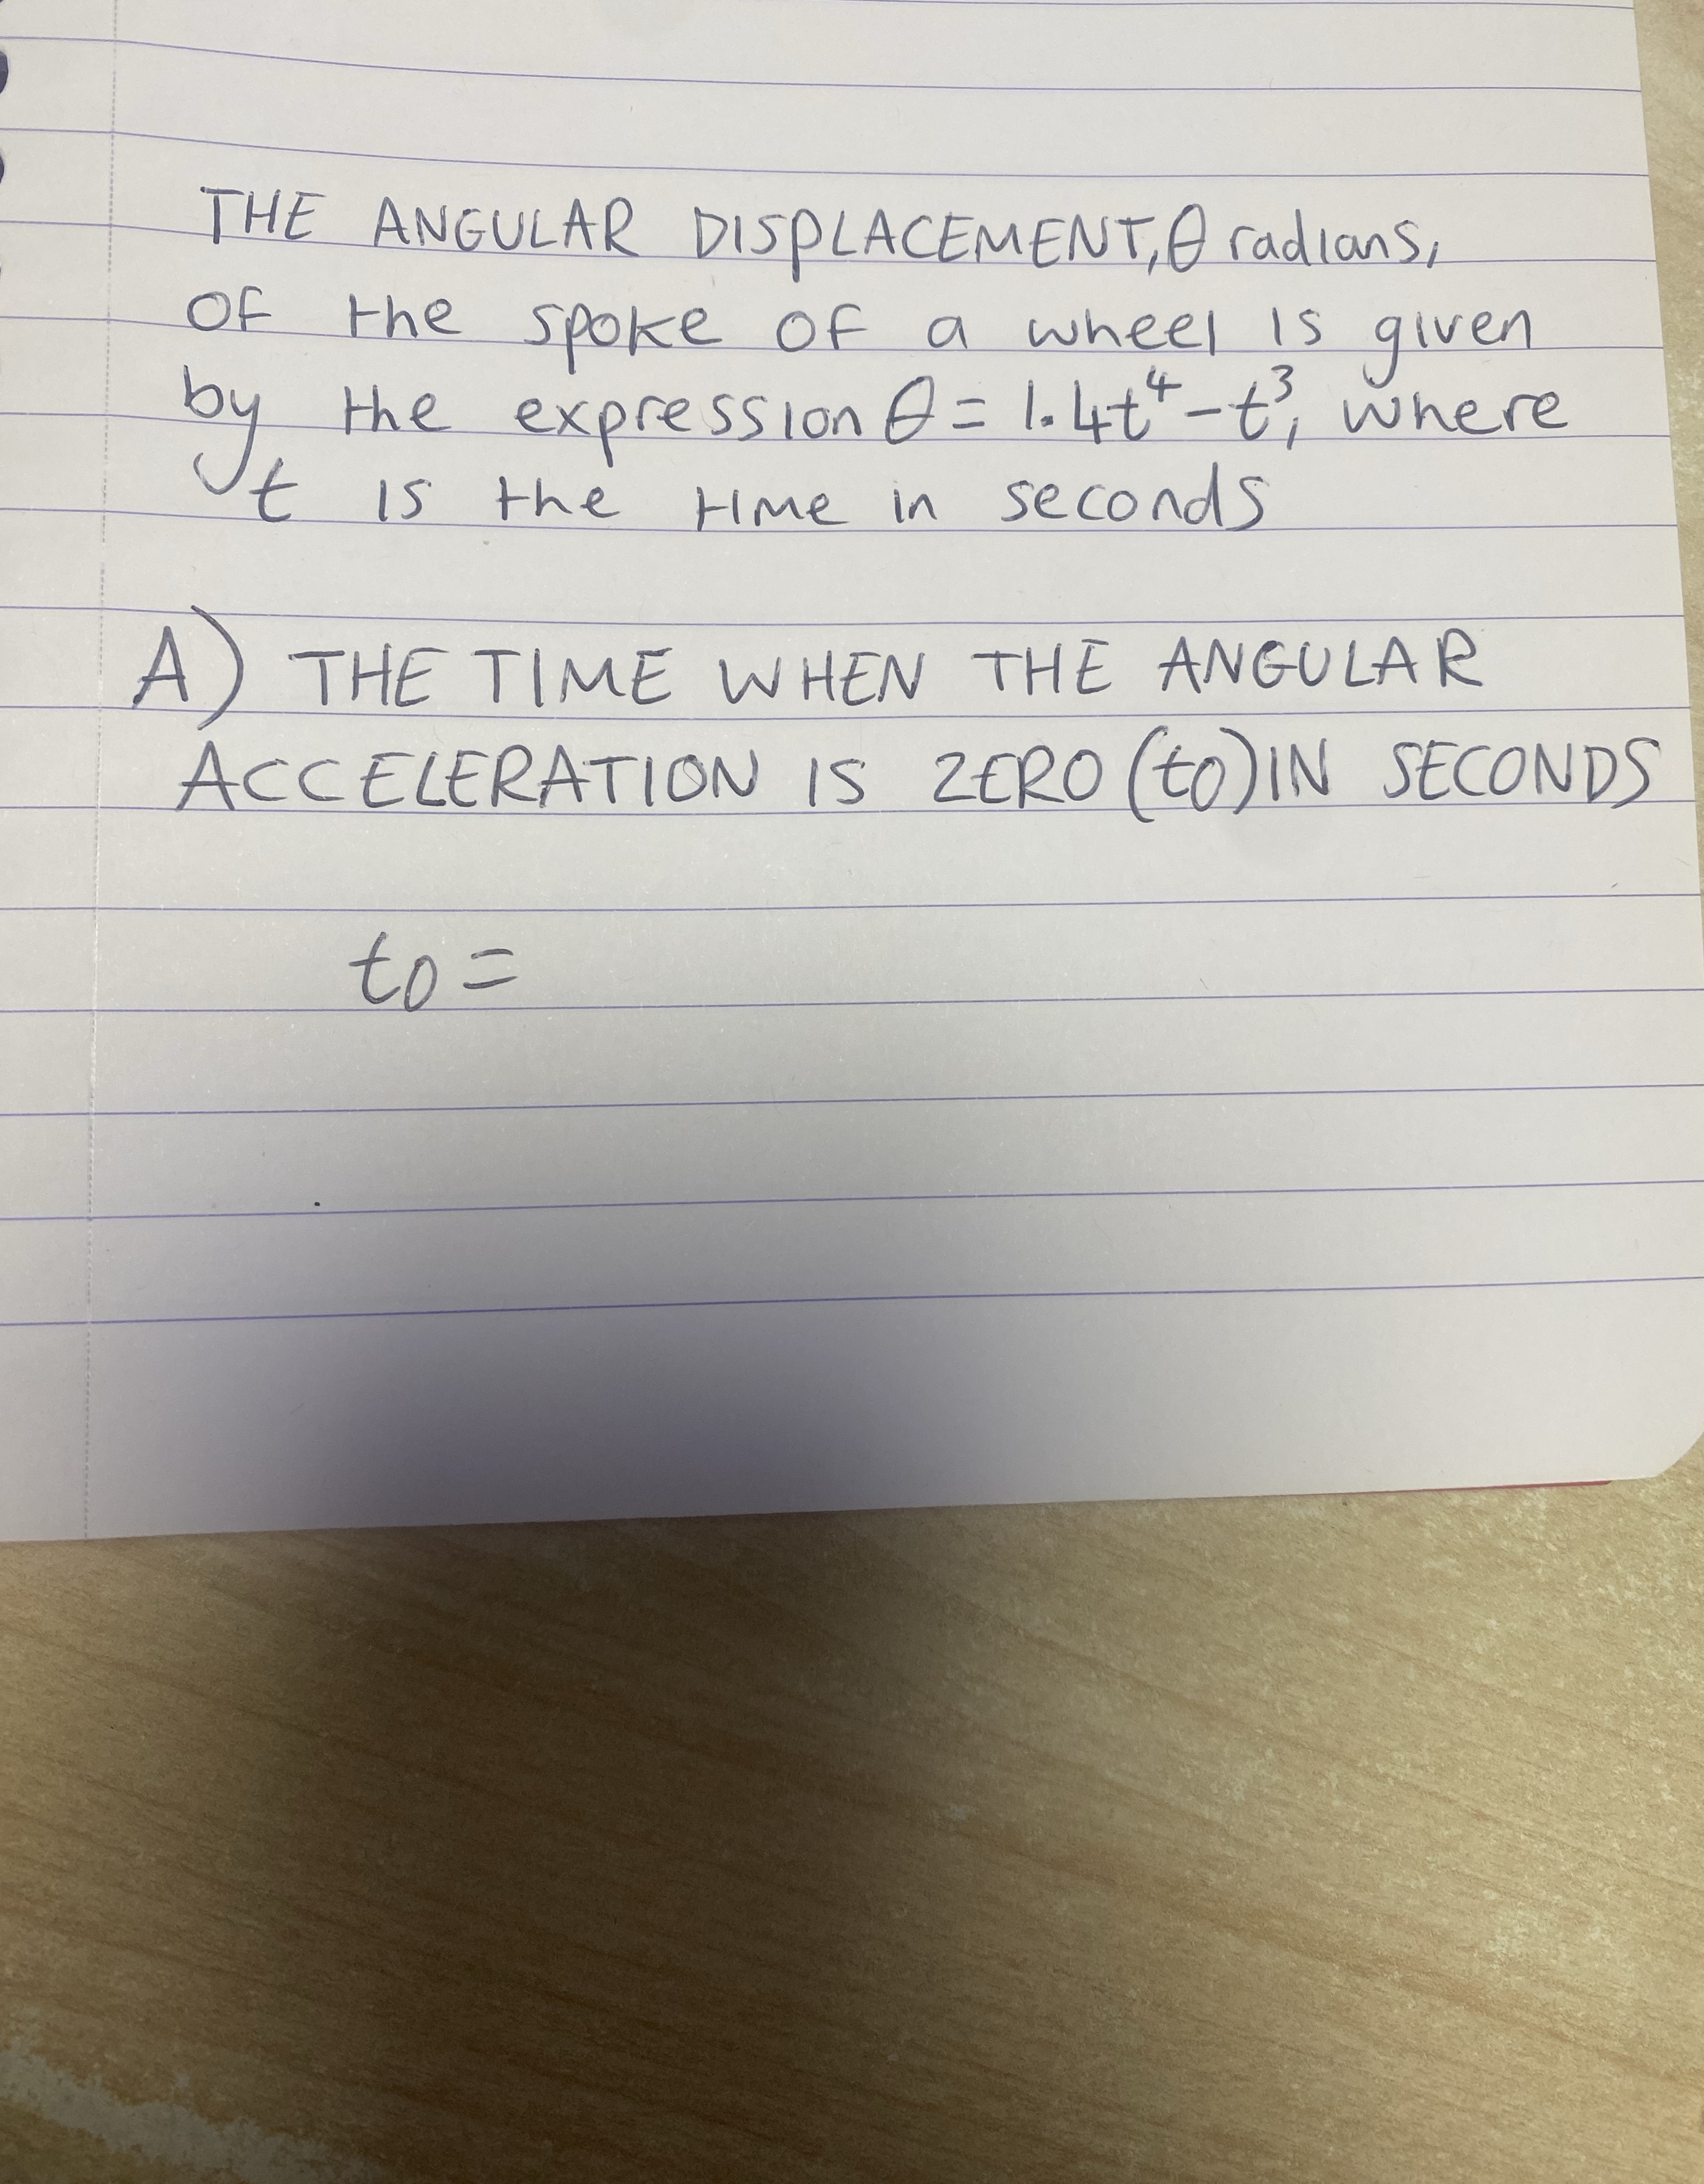 THE ANGULAR DISPLACEMENT, θ radians,
OF the spoke OF a wheel is given
by the expression θ = 1.4t⁴ - t³, where
t is the time in seconds
A) THE TIME WHEN THE ANGULAR
ACCELERATION IS ZERO (t0) IN SECONDS
t0 =